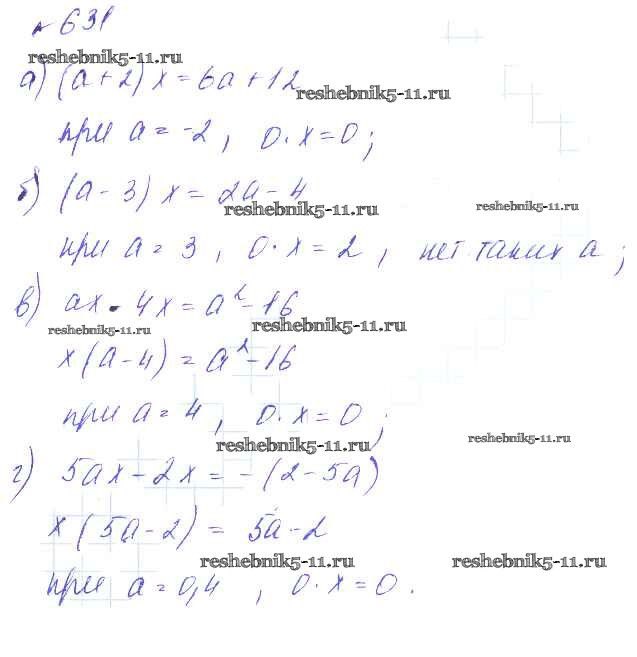 № 631
reshebnik5-11.ru
а) (a + 2) x = 6a + 12
reshebnik5-11.ru
при a = -2, 0 · x = 0;
б) (a - 3) x = 2a - 4
reshebnik5-11.ru
reshebnik5-11.ru
при a = 3, 0 · x = 2, нет таких a;
в) ax - 4x = a² - 16
reshebnik5-11.ru
reshebnik5-11.ru
x (a - 4) = a² - 16
при a = 4, 0 · x = 0;
reshebnik5-11.ru
reshebnik5-11.ru
г) 5ax - 2x = - (2 - 5a)
x (5a - 2) = 5a - 2
reshebnik5-11.ru
reshebnik5-11.ru
при a = 0,4, 0 · x = 0.